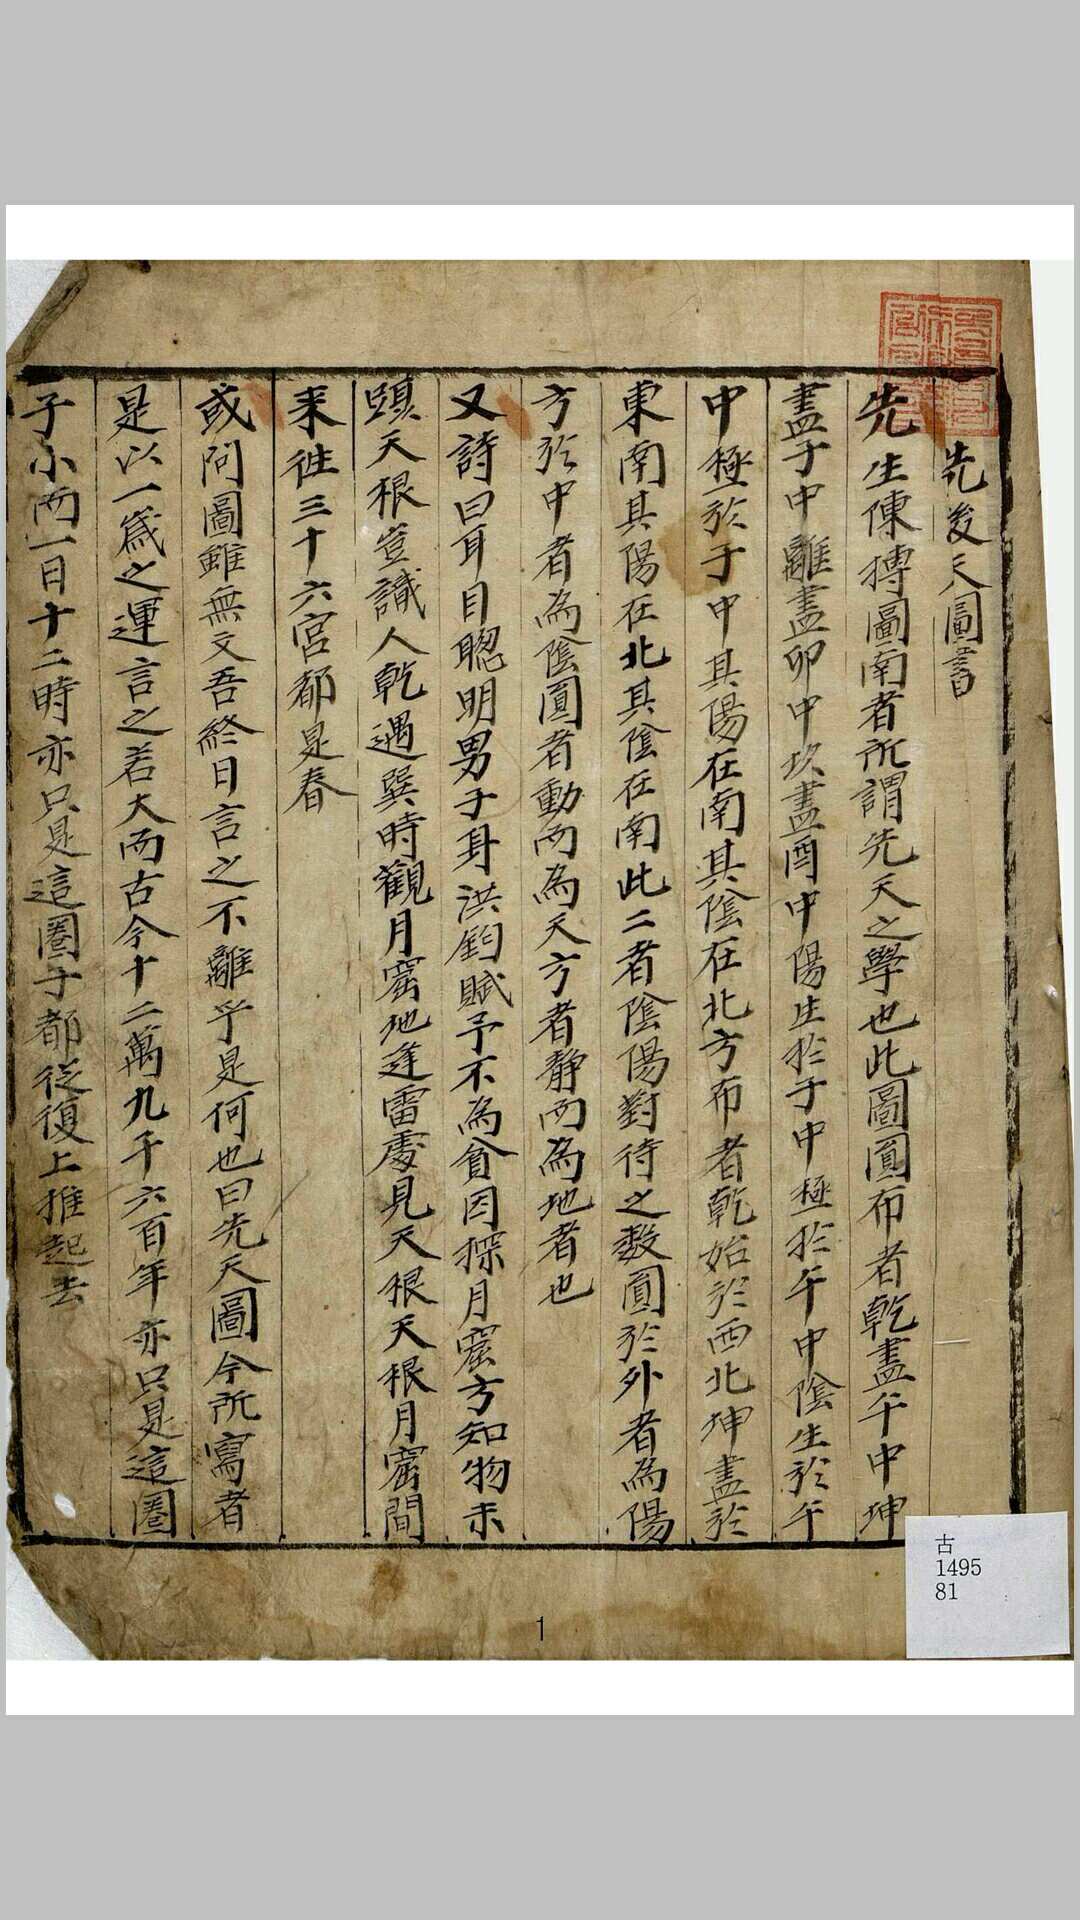 先後天圖書
先生陳摶圖南者所謂先天之學也此圖圓布者乾盡午中坤
盡子中離盡卯中坎盡酉中陽生於子中極於午中陰生於午
中極於子中其陽在南其陰在北方布者乾始於西北坤盡於
東南其陽在北其陰在南此二者陰陽對待之數圓於外者為陽
方於中者為陰圓者動而為天方者靜而為地者也
又詩曰耳目聰明男子身洪鈞賦予不為貧因探月窟方知物未
躡天根豈識人乾遇巽時觀月窟地逢雷處見天根天根月窟間
来徃三十六宮都是春
或問圖雖無文吾終日言之不離乎是何也曰先天圖今所寫者
是以一歲之運言之若大而古今十二萬九千六百年亦只是這圈
子小而一日十二時亦只是這圈子都從復上推起去
古
1495
81
1